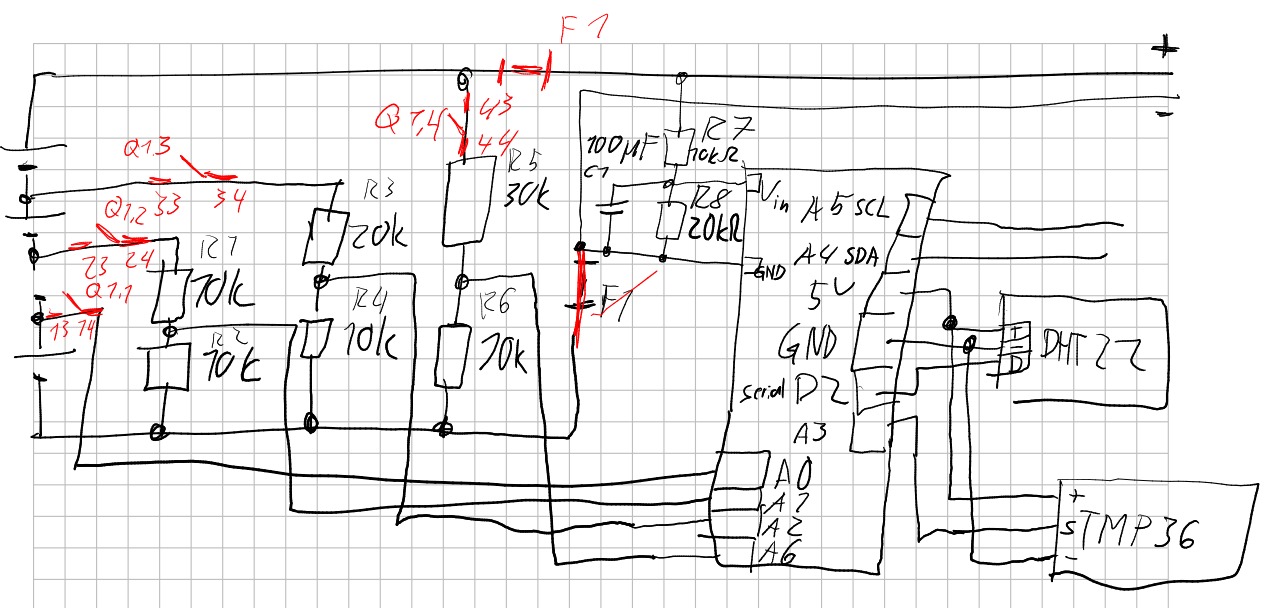 F1
+
-
Q1,4
43
44
Q1.3
33
34
Q1,2
23
24
Q1,1
13
14
R1
10k
R2
10k
R3
20k
R4
10k
R5
30k
R6
10k
F1
100µF
C1
R7
10kΩ
R8
20kΩ
Vin
GND
A5 SCL
A4 SDA
5V
GND
serial D2
A3
A0
A1
A2
A6
+
D
DHT22
+
S TMP36
-